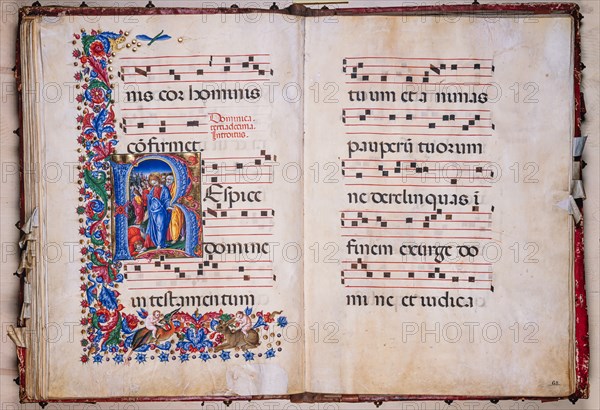 nis cor hominis
Dominica
tertiadecima
Introitus.
cōfirmet.
REspice
domine
in testamentum
tuum et animas
pauperū tuorum
ne derelinquas i
finem exurge do
mine et iudica